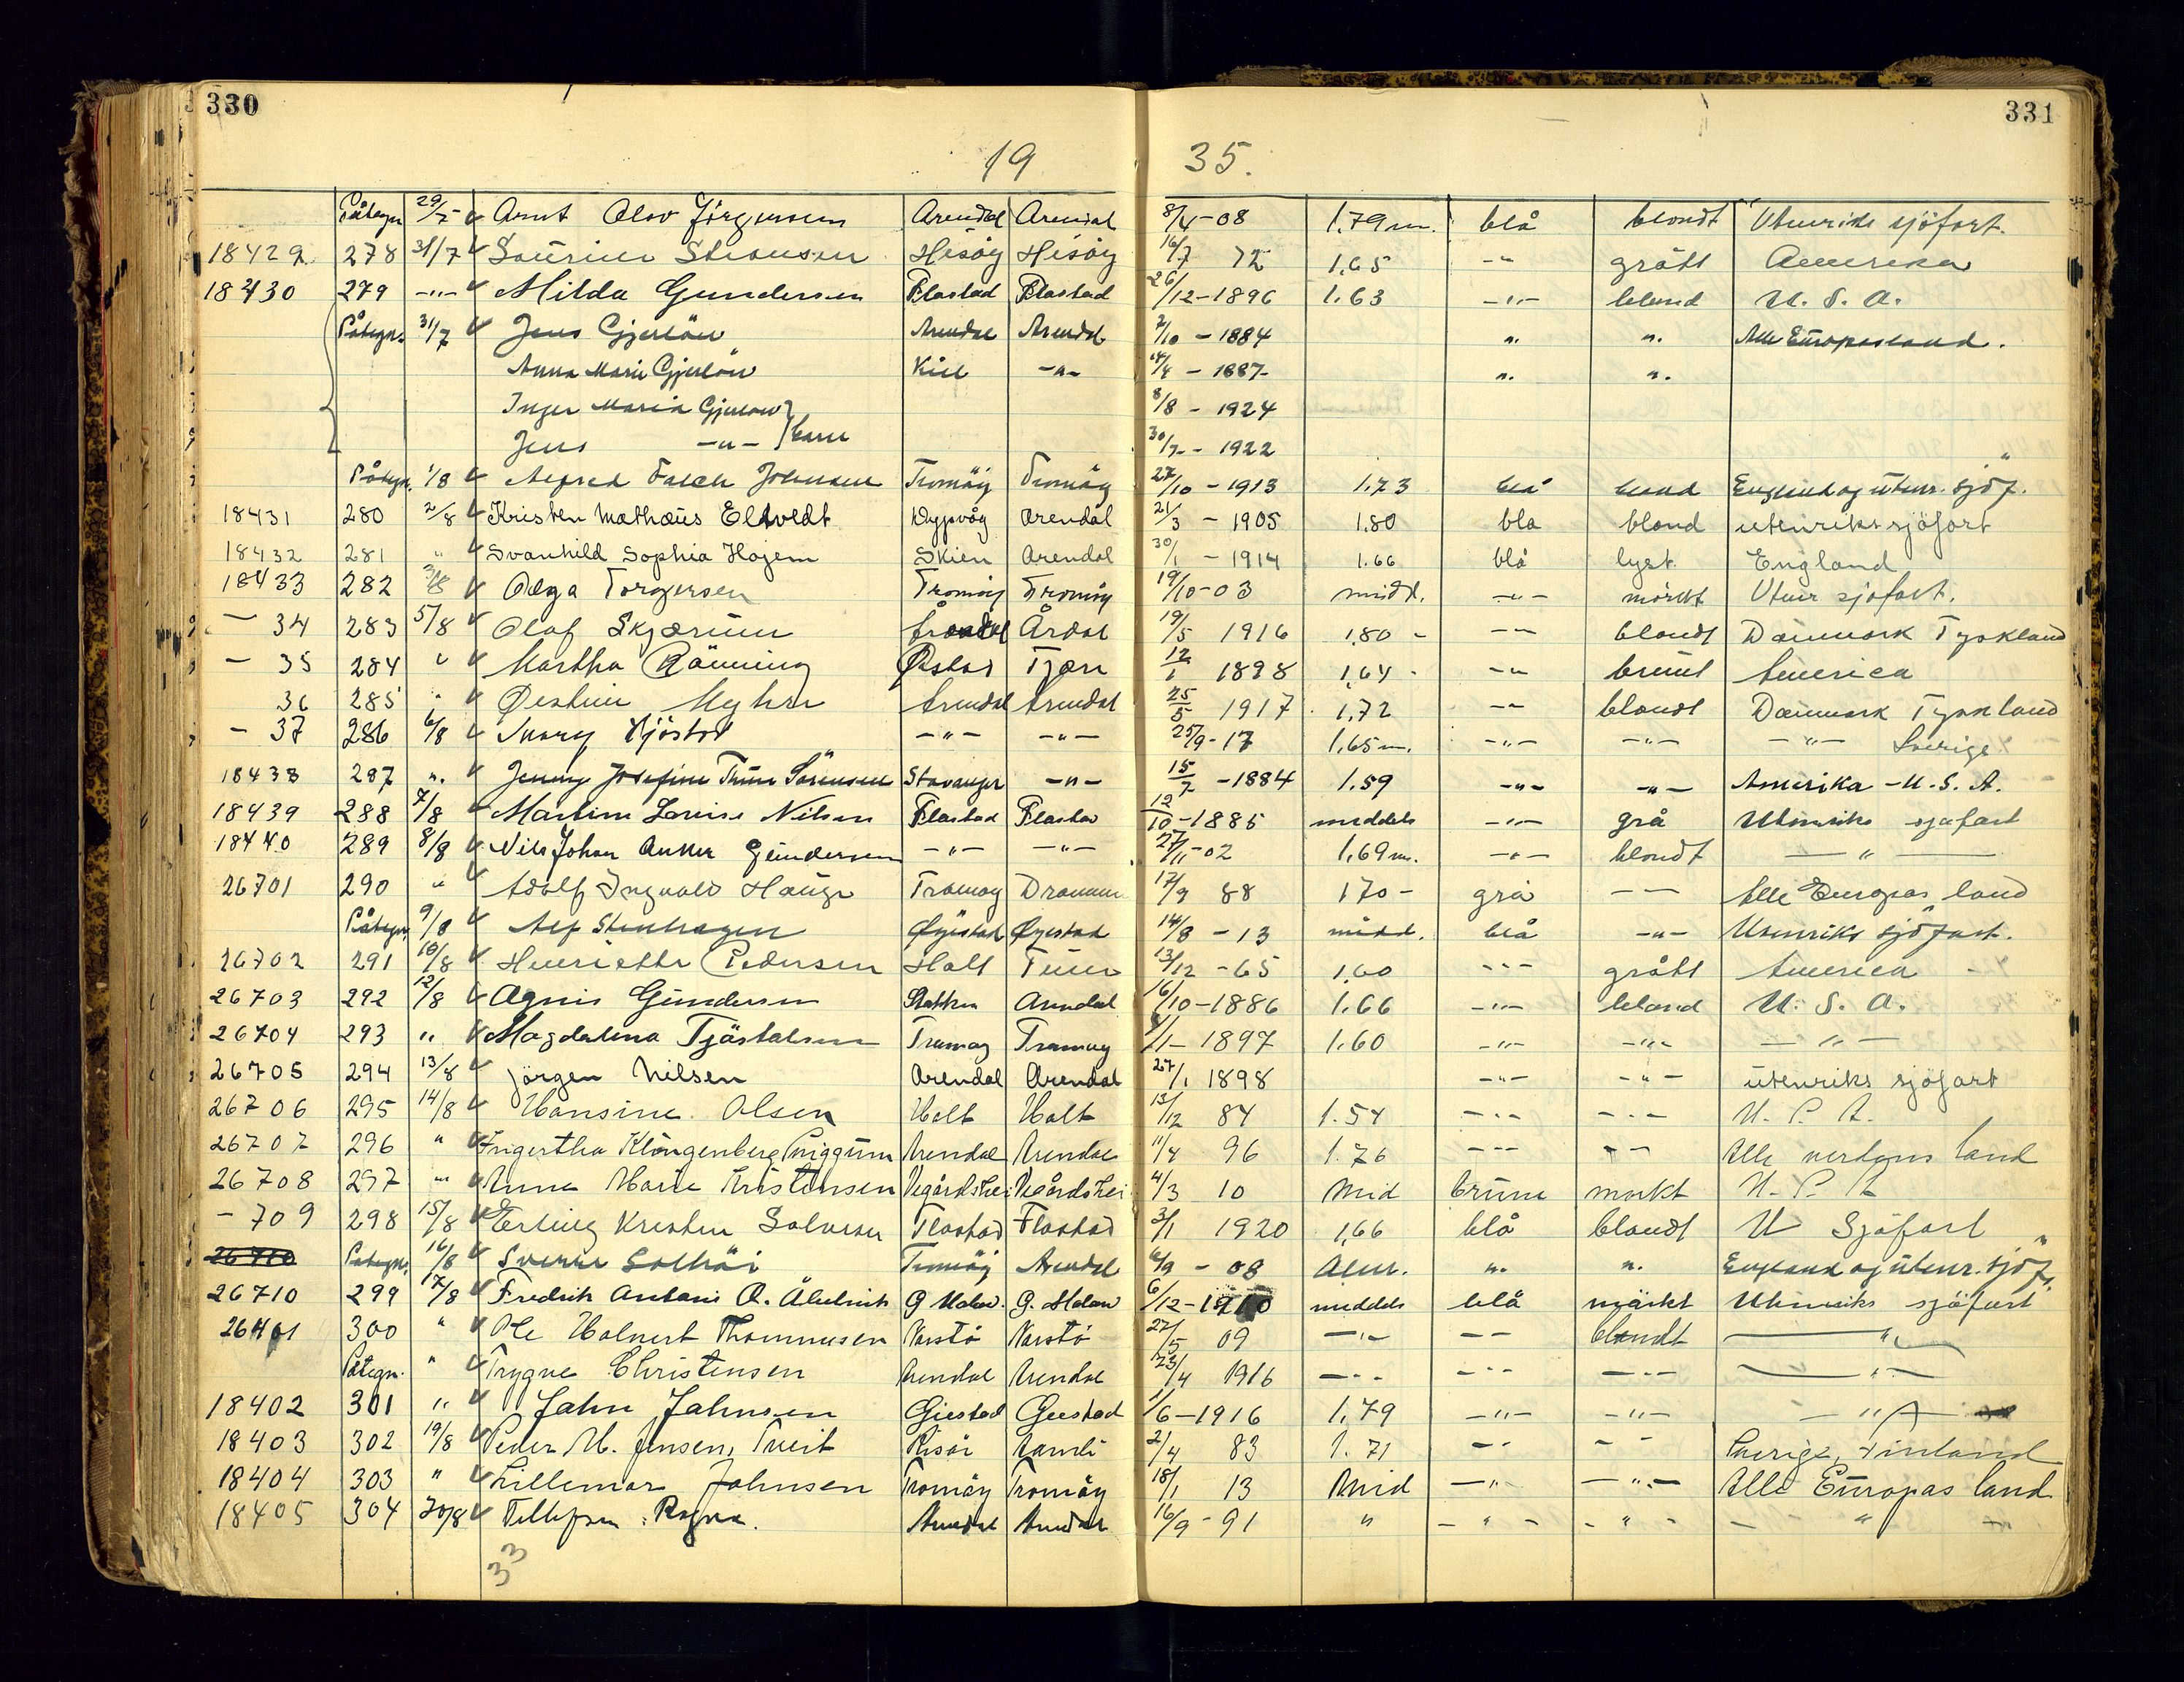 330
331
19 35.
Påtegn 29/7 Arnt Olov Jörgensen Arendal Arendal 8/4-08 1.79 m. blå blondt Utenriks sjöfart.
18429 278 31/7 Hisöy Hisöy 16/7 72 1.65 -"- grått Amerika
18430 279 -"- Milda Gundersen Flastad Flastad 26/12-1896 1.63 -"- blond U. S. A.
Påtegn. 31/7 Jens Gjerlöw Arendal Arendal 2/10 - 1884 ". ". Alle Europas land.
Anna Marie Gjerlöw Kiel -"- 14/4 - 1887- ". ".
Inger Maria Gjerlow 8/8 - 1924
Jens -"- } barn 30/7 - 1922
Påtegn. 1/8 Alfred Falch Johnsen Tromöy Tromöy 27/10 - 1913 1.73 blå blond England og utenr. sjöf.
18431 280 2/8 Kristen Mathæus Eltvedt Dypvåg Arendal 21/3 - 1905 1.80 bla blond utenriks sjöfart
18432 281 " Svanhild Sophia Hojem Skien Arendal 30/1 - 1914 1.66 blå lyst. England
18433 282 Olga Torgersen Tromöy Tromöy 19/10-03 midd. -"- mörkt Utenr sjöfart.
- 34 283 5/8 Olaf Skjærum Arendal Årdal 19/5 1916 1,80 - -"- blondt Danmark Tyskland
- 35 284 " Martha Rönning Øistad Tjøre 12/1 1898 1,64 - -"- brunt America
36 285 " Øistein Myhre Arendal Arendal 25/5 1917 1,72 -"- blondt Danmark Tyskland
- 37 286 6/8 -"- -"- 25/9-17 1,65 m. -"- -"- -"- Sverige
18438 287 ". Jenny Josefine Thine Sörensen Stavanger -"- 15/7 -1884 1.59 -"- -"- Amerika - U.S.A.
18439 288 7/8 Martine Lovise Nilsen Flastad Flastad 12/10-1885 middels -"- grå Utenriks sjøfart
18440 289 8/8 Nils Johan Anker Gundersen -"- -"- 27/11-02 1,69 m. -"- blondt -"-
26701 290 " Adolf Ingvald Hauge Tromøy Dramm 17/9 88 170 - grå -"- Alle Europas land
Påtegn. 9/8 Alf Stenhagen Øyestad Øyestad 14/8 - 13 midd. blå -"- Utenriks sjöfart.
26702 291 10/8 Henriette Pedersen Holt 13/12 - 65 1,60 -"- grått America
26703 292 12/8 Agnis Gundersen Stokken Arendal 16/10-1886 1,66 -"- blond U. S. A.
26704 293 " Magdalena Tjöstolsen Tromøy Tromøy 1/1 - 1897 1,60 -"- -"- -"-
26705 294 13/8 Jörgen Nilsen Arendal Arendal 27/1 1898 -"- -"- utenriks sjöfart
26706 295 14/8 Hansine Olsen Holt Holt 13/12 84 1.54 -"- -"- U. S. A.
26707 296 " Ingertha Klingenberg Arendal Arendal 11/4 96 1.76 -"- -"- Alle verdens land
26708 297 " Anna Marie Kristensen Vegårdshei Vegårdshei 4/3 10 Mid brune mørkt U. S. A.
- 709 298 15/8 Erling Kristen Solversen Flastad Flostad 3/1 1920 1,66 blå blondt U Sjøfart
26710 Påtegn. 16/8 Sverre Solhöi Tromöy Arendal 6/9 - 08 Alm. ". ". England og utenr. sjöf.
26710 299 17/8 Fredrik Antoni O. 6/12-1910 middels blå mørkt Utenriks sjöfart
26401 300 " Ole Halvert Thommesen 27/5 09 -"- -"- blondt -"-
Påtegn. " Trygve Christensen Arendal Arendal 23/4 1916 -"- -"- -"- -"-
18402 301 " John Johnsen Giestad Giestad 1/6-1916 1,79 -"- -"- -"-
18403 302 19/8 Peder M. Jensen, Tveit Risör 2/4 83 1.71 -"- -"- Sverige, Finland
18404 303 " Lillemor Johnsen Tromöy Tromöy 18/1 13 Mid -"- -"- Alle Europas land
18405 304 20/8 Tellefsen Ragna. Arendal Arendal 16/9 - 91 " -"- -"- -"-
33